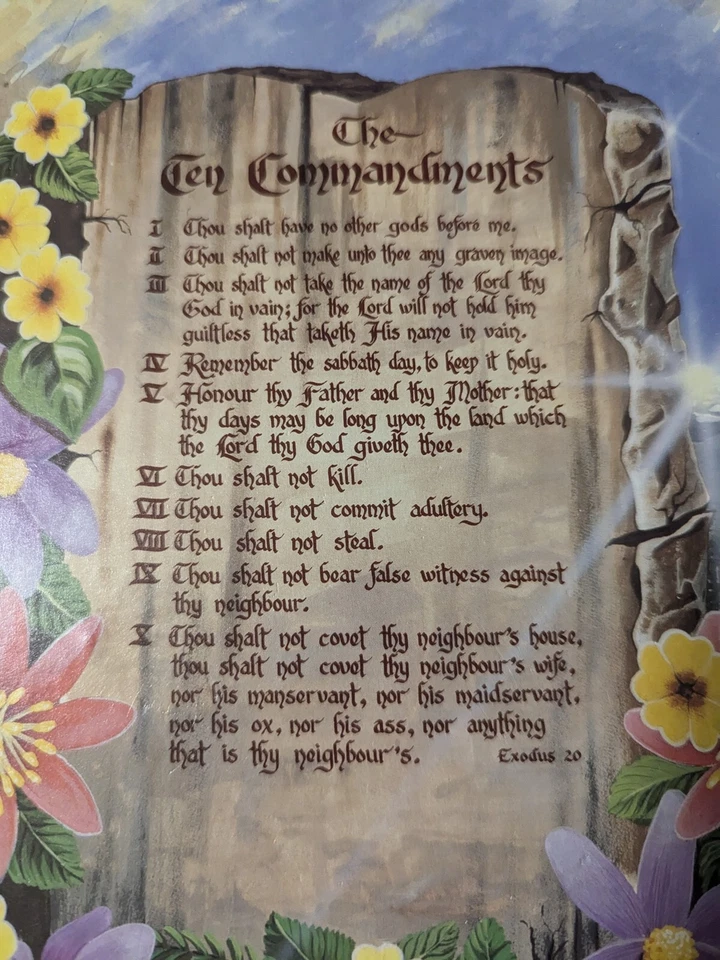 The
Ten Commandments
I Thou shalt have no other gods before me.
II Thou shalt not make unto thee any graven image.
III Thou shalt not take the name of the Lord thy
God in vain; for the Lord will not hold him
guiltless that taketh His name in vain.
IV Remember the sabbath day, to keep it holy.
V Honour thy Father and thy Mother: that
thy days may be long upon the land which
the Lord thy God giveth thee.
VI Thou shalt not kill.
VII Thou shalt not commit adultery.
VIII Thou shalt not steal.
IX Thou shalt not bear false witness against
thy neighbour.
X Thou shalt not covet thy neighbour's house,
thou shalt not covet thy neighbour's wife,
nor his manservant, nor his maidservant,
nor his ox, nor his ass, nor anything
that is thy neighbour's. Exodus 20